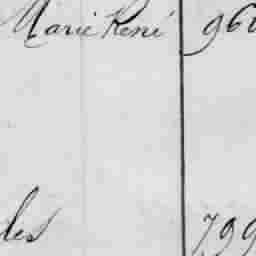 Marie René 960
les 799